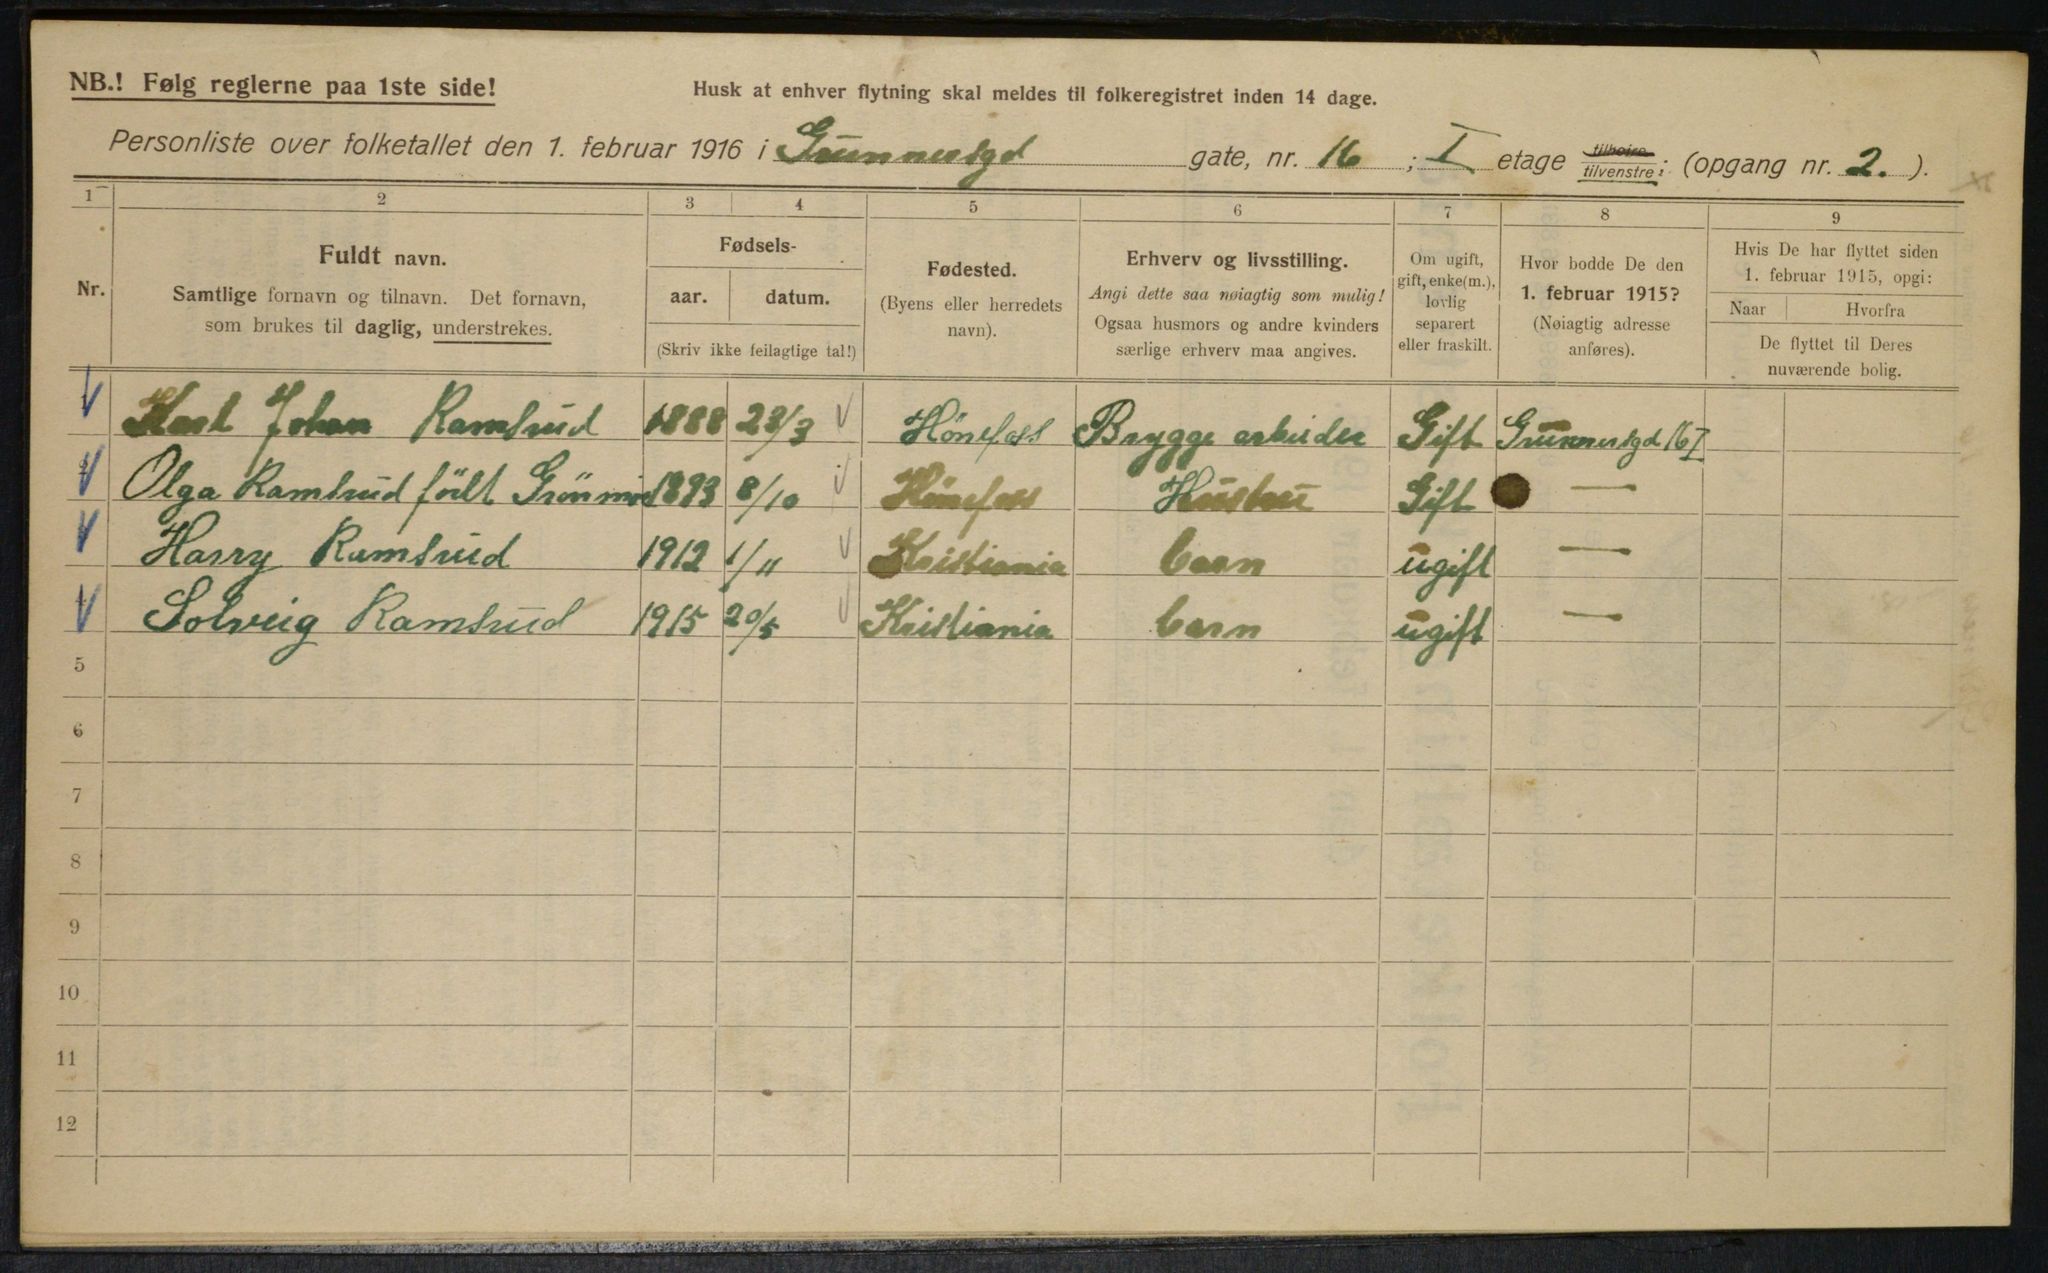 NB.! Følg reglerne paa 1ste side!
Husk at enhver flytning skal meldes til folkeregistret inden 14 dage.
Personliste over folketallet den 1. februar 1916 i Grünnersgd gate, nr. 16 ; I etage tilhøire tilvenstre: (opgang nr. 2. ).
1 2 3 4 5 6 7 8 9
Nr.
Fuldt navn.
Samtlige fornavn og tilnavn. Det fornavn,
som brukes til daglig, understrekes.
Fødsels-
aar. datum.
(Skriv ikke feilagtige tal!)
Fødested.
(Byens eller herredets
navn).
Erhverv og livsstilling.
Angi dette saa nøiagtig som mulig!
Ogsaa husmors og andre kvinders
særlige erhverv maa angives.
Om ugift,
gift, enke(m.),
lovlig
separert
eller fraskilt.
Hvor bodde De den
1. februar 1915?
(Nøiagtig adresse
anføres).
Hvis De har flyttet siden
1. februar 1915, opgi:
Naar Hvorfra
De flyttet til Deres
nuværende bolig.
Karl Johan Ramsrud 1888 28/3 Hönefoss Brygge arbeider Gift Grünnersgd 16 I
Olga Ramsrud födt 1893 8/10 Hönefoss Hustru Gift —
Harry Ramsrud 1912 1/11 Kristiania barn ugift —
Solveig Ramsrud 1915 20/5 Kristiania barn ugift —
5
6
7
8
9
10
11
12